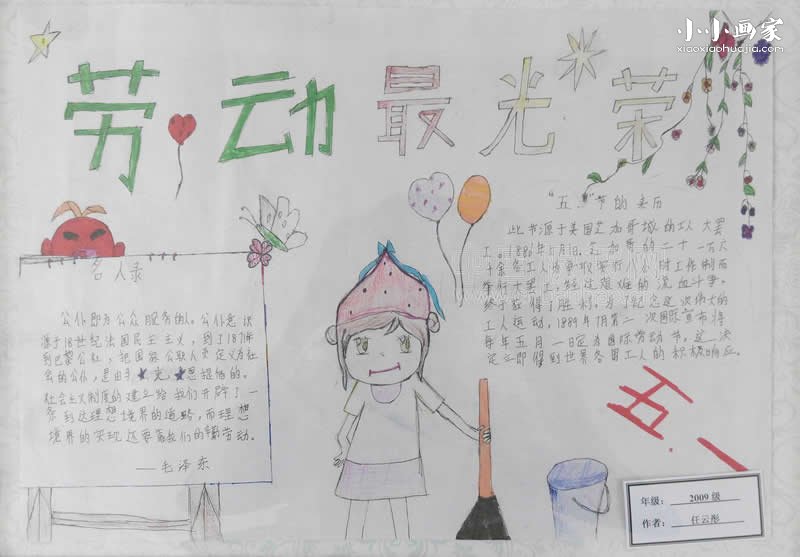 小小画家
xiaoxiaohuajia.com
劳动最光荣
"五.一"节的来历
此节源于美国芝加哥城的工人大罢
工。1886年5月1日,芝加哥的二十一万六
千余名工人为争取实行八小时工作制而
举行大罢工,经过艰难的流血斗争,
终于获得了胜利。为了纪念这次伟大的
工人运动,1889年7月第二次国际宣布将
每年五月一日定为国际劳动节。这一决
定立即得到世界各国工人的积极响应。
名人录
公仆即为公众服务的人。公仆意识
源于18世纪法国民主主义,到了1871年
到巴黎公社,把国家公职人员定义为社
会的公仆,是由于克,思想提倡的。
社会主义制度的建立给我们开辟了一
条到达理想境界的道路,而理想
境界的实现还要靠我们的辛勤劳动。
——毛泽东
五.一
年级: 2009级
作者: 任云彤